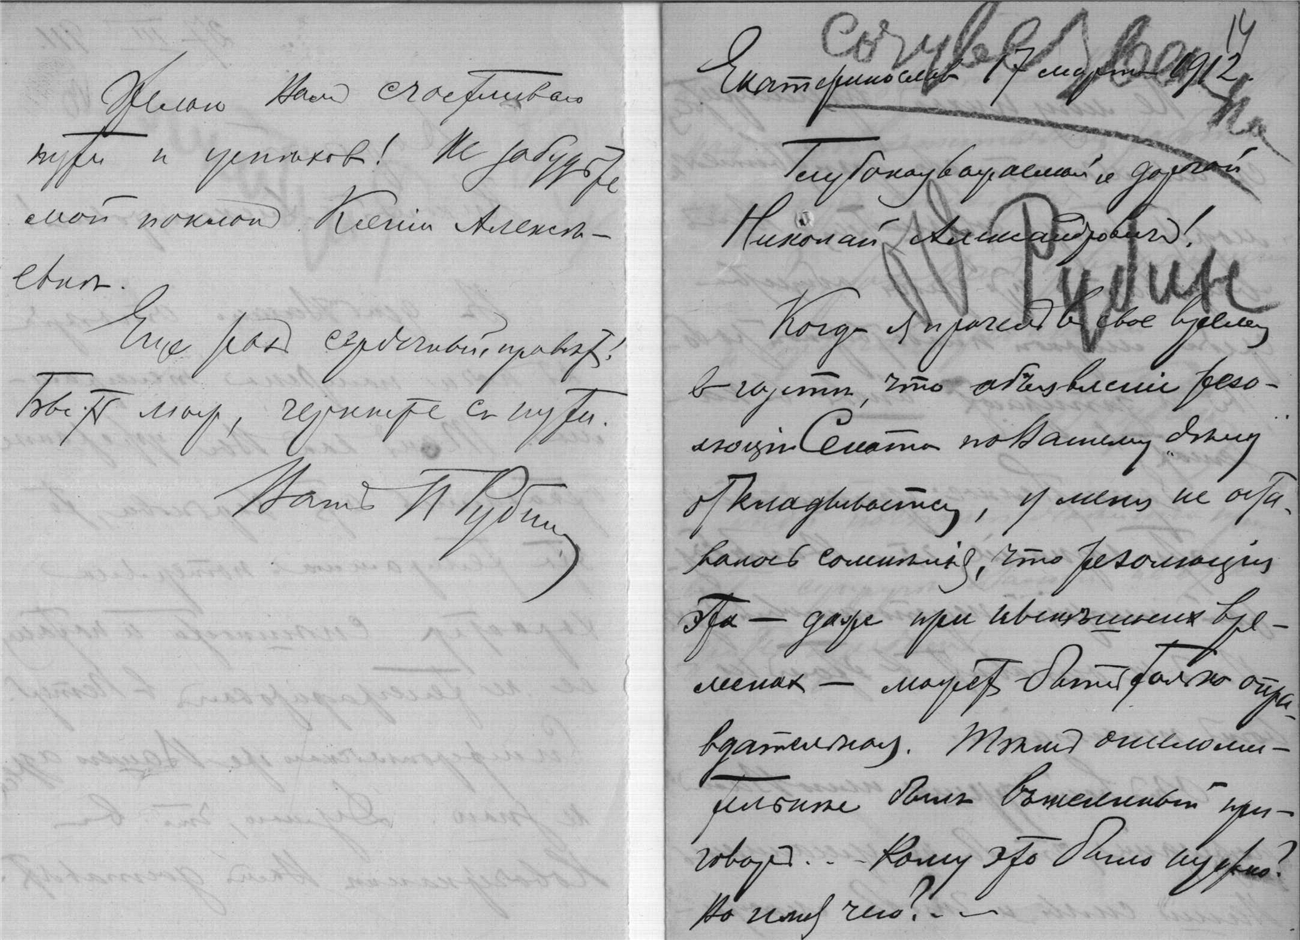 Желаю Вамъ счастливаго
пути и успѣховъ! Не забудьте
мой поклонъ Ксеніи Алексѣ-
евнѣ.
Еще разъ сердечный привѣтъ!
Бак. м. мож, черкните съ пути.
Вашъ П Рубинъ
14
сочувс
Екатеринославъ 17 марта 1912.
Глубокоуважаемый и дорогой
Николай Александровичъ!
Рубин
Когда я прочелъ въ свое время
въ газетѣ, что объявленіе резо-
люціи Сената по Вашему „дѣлу"
откладывается, у меня не оста-
валось сомнѣнія, что резолюція
эта — даже при нынѣшнихъ вре-
менахъ — можетъ быть только опра-
вдательная. Тѣмъ ошеломи-
тельнѣе былъ въ приго-
говоръ... Кому это было нужно?
Во имя чего?..—